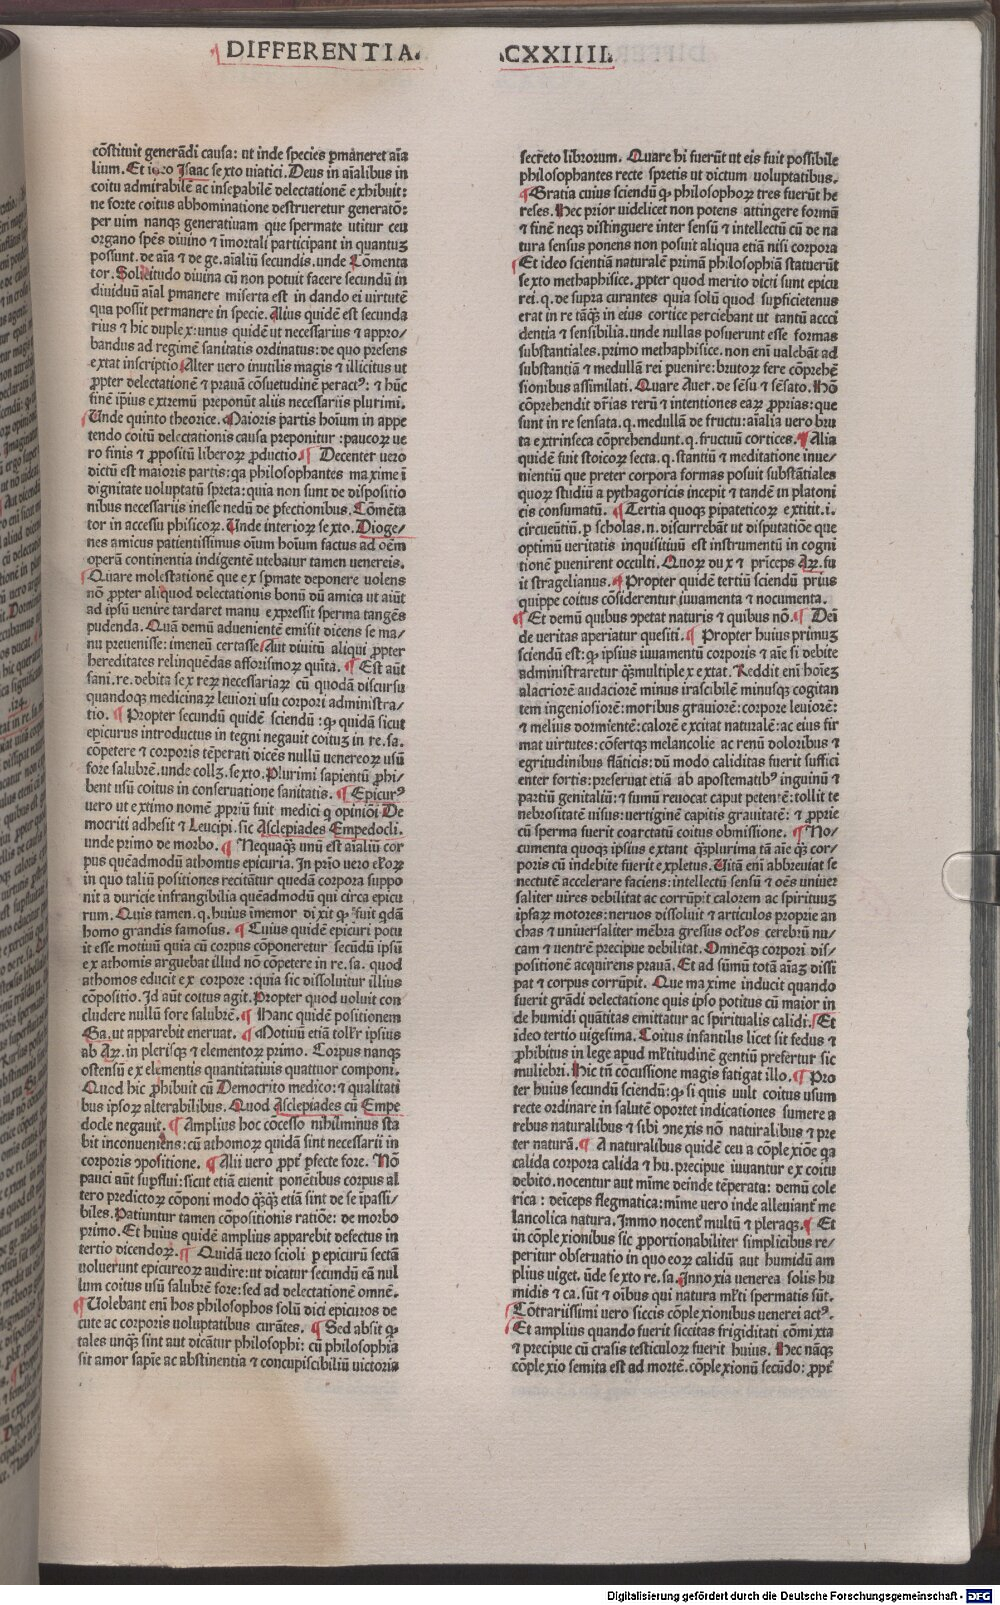 DIFFERENTIA CXXIIII.
cõstituit generãdi causa: ut inde species p̱maneret aĩa
lium. Et iõ Isaac sexto uiatici. Deus in aĩalibus in
coitu admirabilẽ ac insepabilẽ delectationẽ exhibuit:
ne forte coitus abhominatione destrueretur generatõ:
per uim nanqꝫ generatiuam que spermate utitur ceu
organo spẽs diuino ⁊ ĩmortali participant in quantuꝫ
possunt. de aĩa ⁊ de ge. aĩaliũ secundis. unde Cõmenta
tor. Solicitudo diuina cũ non potuit facere secundũ in
diuiduũ aĩal p̱manere miserta est in dando ei uirtutẽ
qua possit permanere in specie. Alius quidẽ est secunda
rius ⁊ hic duplex: unus quidẽ ut necessarius ⁊ appro/
bandus ad regimẽ sanitatis ordinatus: de quo presens
extat inscriptio Alter uero inutilis magis ⁊ illicitus ut
ꝓpter delectationẽ ⁊ prauã cõsuetudinẽ peractꝰ: ⁊ hũc
finẽ ip̃ius extremũ preponũt aliis necessariis plurimi.
Unde quinto theorice. Maioris partis hoĩum in appe
tendo coitũ delectationis causa preponitur: paucoꝝ ue
ro finis ⁊ ꝓpositũ liberoꝝ ꝓductio. ¶ Decenter uero
dictũ est maioris partis: qa philosophantes maxime ĩ
dignitate uoluptatũ spreta: quia non sunt de dispositio
nibus necessariis inesse nedũ de p̱fectionibus. Cõmẽta
tor in accessu phisicoꝝ. Unde interioꝝ sexto. Dioge/
nes amicus patientissimus oĩum hoĩum factus ad oẽm
operã continentia indigente utebatur tamen uenereis.
Quare molestationẽ que ex sp̱mate deponere uolens
nõ ꝓpter aliquod delectationis bonũ dũ amica ut aiũt
ad ipsũ uenire tardaret manu expressit sperma tangẽs
pudenda. Quã demũ aduenientẽ emisit dicens se ma/
nu preuenisse: imeneũ certasse Aut diuitũ aliqui ꝓpter
hereditates relinquẽdas afforismoꝝ quĩta. ¶ Est aũt
sani. re. debita sex reꝝ necessariaꝝ cũ quodã discursu
quandoqꝫ medicinaꝝ leuiori usu corpori administra/
tio. ¶ Propter secundũ quidẽ sciendũ: ꝙ quidã sicut
epicurus introductus in tegni negauit coituꝫ in re. sa.
cõpetere ⁊ corporis tẽperati dicẽs nullũ uenereoꝝ usũ
fore salubrẽ. unde collꝫ. sexto. Plurimi sapientũ ꝓhi/
bent usũ coitus in conseruatione sanitatis. ¶ Epicurꝰ
uero ut extimo nomẽ ꝓpriũ fuit medici q opiniõi De
mocriti adhesit ⁊ Leucipi. sic Asclepiades Empedocli.
unde primo de morbo. ¶ Nequaqꝫ unũ est aĩaliũ cor
pus quẽadmodũ athomus epicuria. In prĩo uero eloꝝ
in quo taliũ positiones recitãtur quedã corpora suppo
nit a duricie infrangibilia quẽadmodũ qui circa epicu
rum. Quis tamen. q. huius imemor dixit ꝙ fuit qdã
homo grandis famosus. ¶ Cuius quidẽ epicuri potu
it esse motiuũ quia cũ corpus cõponeretur secũdũ ipsũ
ex athomis arguebat illud nõ cõpetere in re. sa. quod
athomos educit ex corpore: quia sic dissoluitur illius
cõpositio. Id aũt coitus agit. Propter quod uoluit con
cludere nullũ fore salubrẽ. ¶ Hanc quidẽ positionem
Ga. ut apparebit eneruat. ¶ Motiuũ etiã tollr̃ ipsius
ab Aꝝ. in plerisqꝫ ⁊ elementoꝝ primo. Corpus nanqꝫ
ostensũ ex elementis quantitatiuis quattuor componi.
Quod hic ꝓhibuit cũ Democrito medico: ⁊ qualitati
bus ipsoꝝ alterabilibus. Quod Asclepiades cũ Empe
docle negauit. ¶ Amplius hoc cõcesso nihilminus sta
bit inconueniens: cũ athomoꝝ quidã sint necessarii in
corporis ꝯpositione. ¶ Alii uero ꝓpt̃ p̱fecte fore. Nõ
pauci aũt supflui: sicut etiã euenit ponẽtibus corpus al
tero predictoꝝ cõponi modo q̃ꝫq̃ꝫ etiã sint de se ĩpassi/
biles. Patiuntur tamen cõpositionis ratiõe: de morbo
primo. Et huius quidẽ amplius apparebit defectus in
tertio dicendoꝝ. ¶ Quidã uero scioli p̱ epicurũ sectã
uoluerunt epicureoꝝ audire: ut dicatur secundũ eã nul
lum coitus usũ salubrẽ fore: sed ad delectationẽ omnẽ.
¶ Uolebant enĩ hos philosophos solũ dici epicuros de
cute ac corporis uoluptatibus curãtes. ¶ Sed absit ꝙ
tales unqꝫ sint aut dicãtur philosophi: cũ philosophia
sit amor sapĩe ac abstinentia ⁊ concupiscibiliũ uictoria
secreto librorum. Quare hi fuerũt ut eis fuit possibile
philosophantes recte spretis ut dictum uoluptatibus.
¶ Gratia cuius sciendũ ꝙ philosophoꝝ tres fuerũt he
reses. Hec prior uidelicet non potens attingere formũ
⁊ finẽ neqꝫ distinguere inter sensũ ⁊ intellectũ cũ de na
tura sensus ponens non posuit aliqua etiã nisi corpora
Et ideo scientiã naturalẽ primã philosophiã statuerũt
sexto methaphisice. ꝓpter quod merito dicti sunt epicu
rei. q. de supra curantes quia solũ quod sup̱ficietenus
erat in re tãqꝫ in eius cortice perciebant ut tantũ accci
dentia ⁊ sensibilia. unde nullas posuerunt esse formas
substantiales. primo methaphisice. non enĩ ualebãt ad
substantiã ⁊ medullã rei puenire: brutoꝝ fere cõprehẽ
sionibus assimilati. Quare Auer. de sẽsu ⁊ sẽsato. Hõ
cõprehendit dr̃ias rerũ ⁊ intentiones eaꝝ ꝓprias: que
sunt in re sensata. q. medullã de fructu: aĩalia uero bru
ta extrinseca cõprehendunt. q. fructuũ cortices. ¶ Alia
quidẽ fuit stoicoꝝ secta. q. stantiũ ⁊ meditatione inue/
nientiũ que preter corpora formas posuit substãtiales
quoꝝ studiũ a pythagoricis incepit ⁊ tandẽ in platoni
cis consumatũ. ¶ Tertia quoqꝫ pipateticoꝝ extitit. i.
circueũtiũ. p̱ scholas. n. discurrebãt ut disputatiõe que
optimũ ueritatis inquisitiuũ est instrumentũ in cogni
tionẽ puenirent occulti. Quoꝝ dux ⁊ prĩceps Aꝝ. fu
it stragelianus. ¶ Propter quidẽ tertiũ sciendũ prius
quippe coitus cõsiderentur iuuamenta ⁊ nocumenta.
¶ Et demũ quibus ꝯpetat naturis ⁊ quibus nõ. ¶ Deĩ
de ueritas aperiatur quesiti. ¶ Propter huius primuꝫ
sciendũ est: ꝙ ipsius iuuamentũ corporis ⁊ aĩe si debite
administraretur q̃ꝫmultiplex extat. Reddit enĩ hoĩeꝫ
alacriorẽ audaciorẽ minus irascibilẽ minusqꝫ cogitan
tem ingeniosiorẽ: motibus grauiorẽ: corpore leuiorẽ:
⁊ melius dormientẽ: calorẽ excitat naturalẽ: ac eius fir
mat uirtutes: cõfertqꝫ melancolie ac renũ doloribus ⁊
egritudinibus flãticis: dũ modo caliditas fuerit suffici
enter fortis: preseruat etiã ab apostematibꝰ inguinũ ⁊
partiũ genitaliũ: ⁊ fumũ reuocat caput petentẽ: tollit te
nebrositatẽ uisus: uertiginẽ capitis grauitatẽ: ⁊ ꝓprie
cũ sperma fuerit coarctatũ coitus obmissione. ¶ No/
cumenta quoqꝫ ipsius extant q̃ꝫplurima tã aĩe q̃ꝫ cor/
poris cũ indebite fuerit expletus. Uitã enĩ abbreuiat se
nectutẽ accelerare faciens: intellectũ sensũ ⁊ oẽs uniuer
saliter uires debilitat ac corrũpit calorem ac spirituuꝫ
ipsaꝝ motores: neruos dissoluit ⁊ articulos proprie an
chas ⁊ uniuersaliter mẽbra gressus oclos cerebrũ nu/
cam ⁊ uentrẽ precipue debilitat. Omnẽqꝫ corpori dis/
positionẽ acquirens prauã. Et ad sũmũ totã aĩaꝫ dissi
pat ⁊ corpus corrũpit. Que maxime inducit quando
fuerit grãdi delectatione quis ipso potitus cũ maior in
de humidi quãtitas emittatur ac spiritualis calidi. Et
ideo tertio uigesima. Coitus infantilis licet sit fedus ⁊
ꝓhibitus in lege apud mltitudinẽ gentiũ prefertur sic
muliebri. Hic tñ cõcussione magis fatigat illo. ¶ Pro
ter huius secundũ sciendũ: ꝙ si quis uult coitus usum
recte ordinare in salutẽ oportet indicationes sumere a
rebus naturalibus ⁊ sibi ãnexis nõ naturalibus ⁊ pre
ter naturã. ¶ A naturalibus quidẽ ceu a cõplexiõe qa
calida corpora calida ⁊ hu. precipue iuuantur ex coitu
debito. nocentur aut mĩme deinde tẽperata: demũ cole
rica: deĩceps flegmatica: mĩme uero inde alleuiant̃ me
lancolica natura. Immo nocent̃ multũ ⁊ pleraqꝫ. ¶ Et
in cõplexionibus sic ꝓportionabiliter simplicibus re/
peritur obseruatio in quo eoꝝ calidũ aut humidũ am
plius uiget. ũde sexto re. sa. Innoxia uenerea solis hu
midis ⁊ ca. sũt ⁊ oĩbus qui natura mlti spermatis sũt.
Cõtrariissimi uero siccis cõplexionibus uenerei actꝰ.
Et amplius quando fuerit siccitas frigiditati cõmixta
⁊ precipue cũ crasis testiculoꝝ fuerit huius. Hec nãqꝫ
cõplexio semita est ad mortẽ. cõplexionũ secũdo: ꝓpt̃
Digitalisierung gefördert durch die Deutsche Forschungsgemeinschaft - DFG